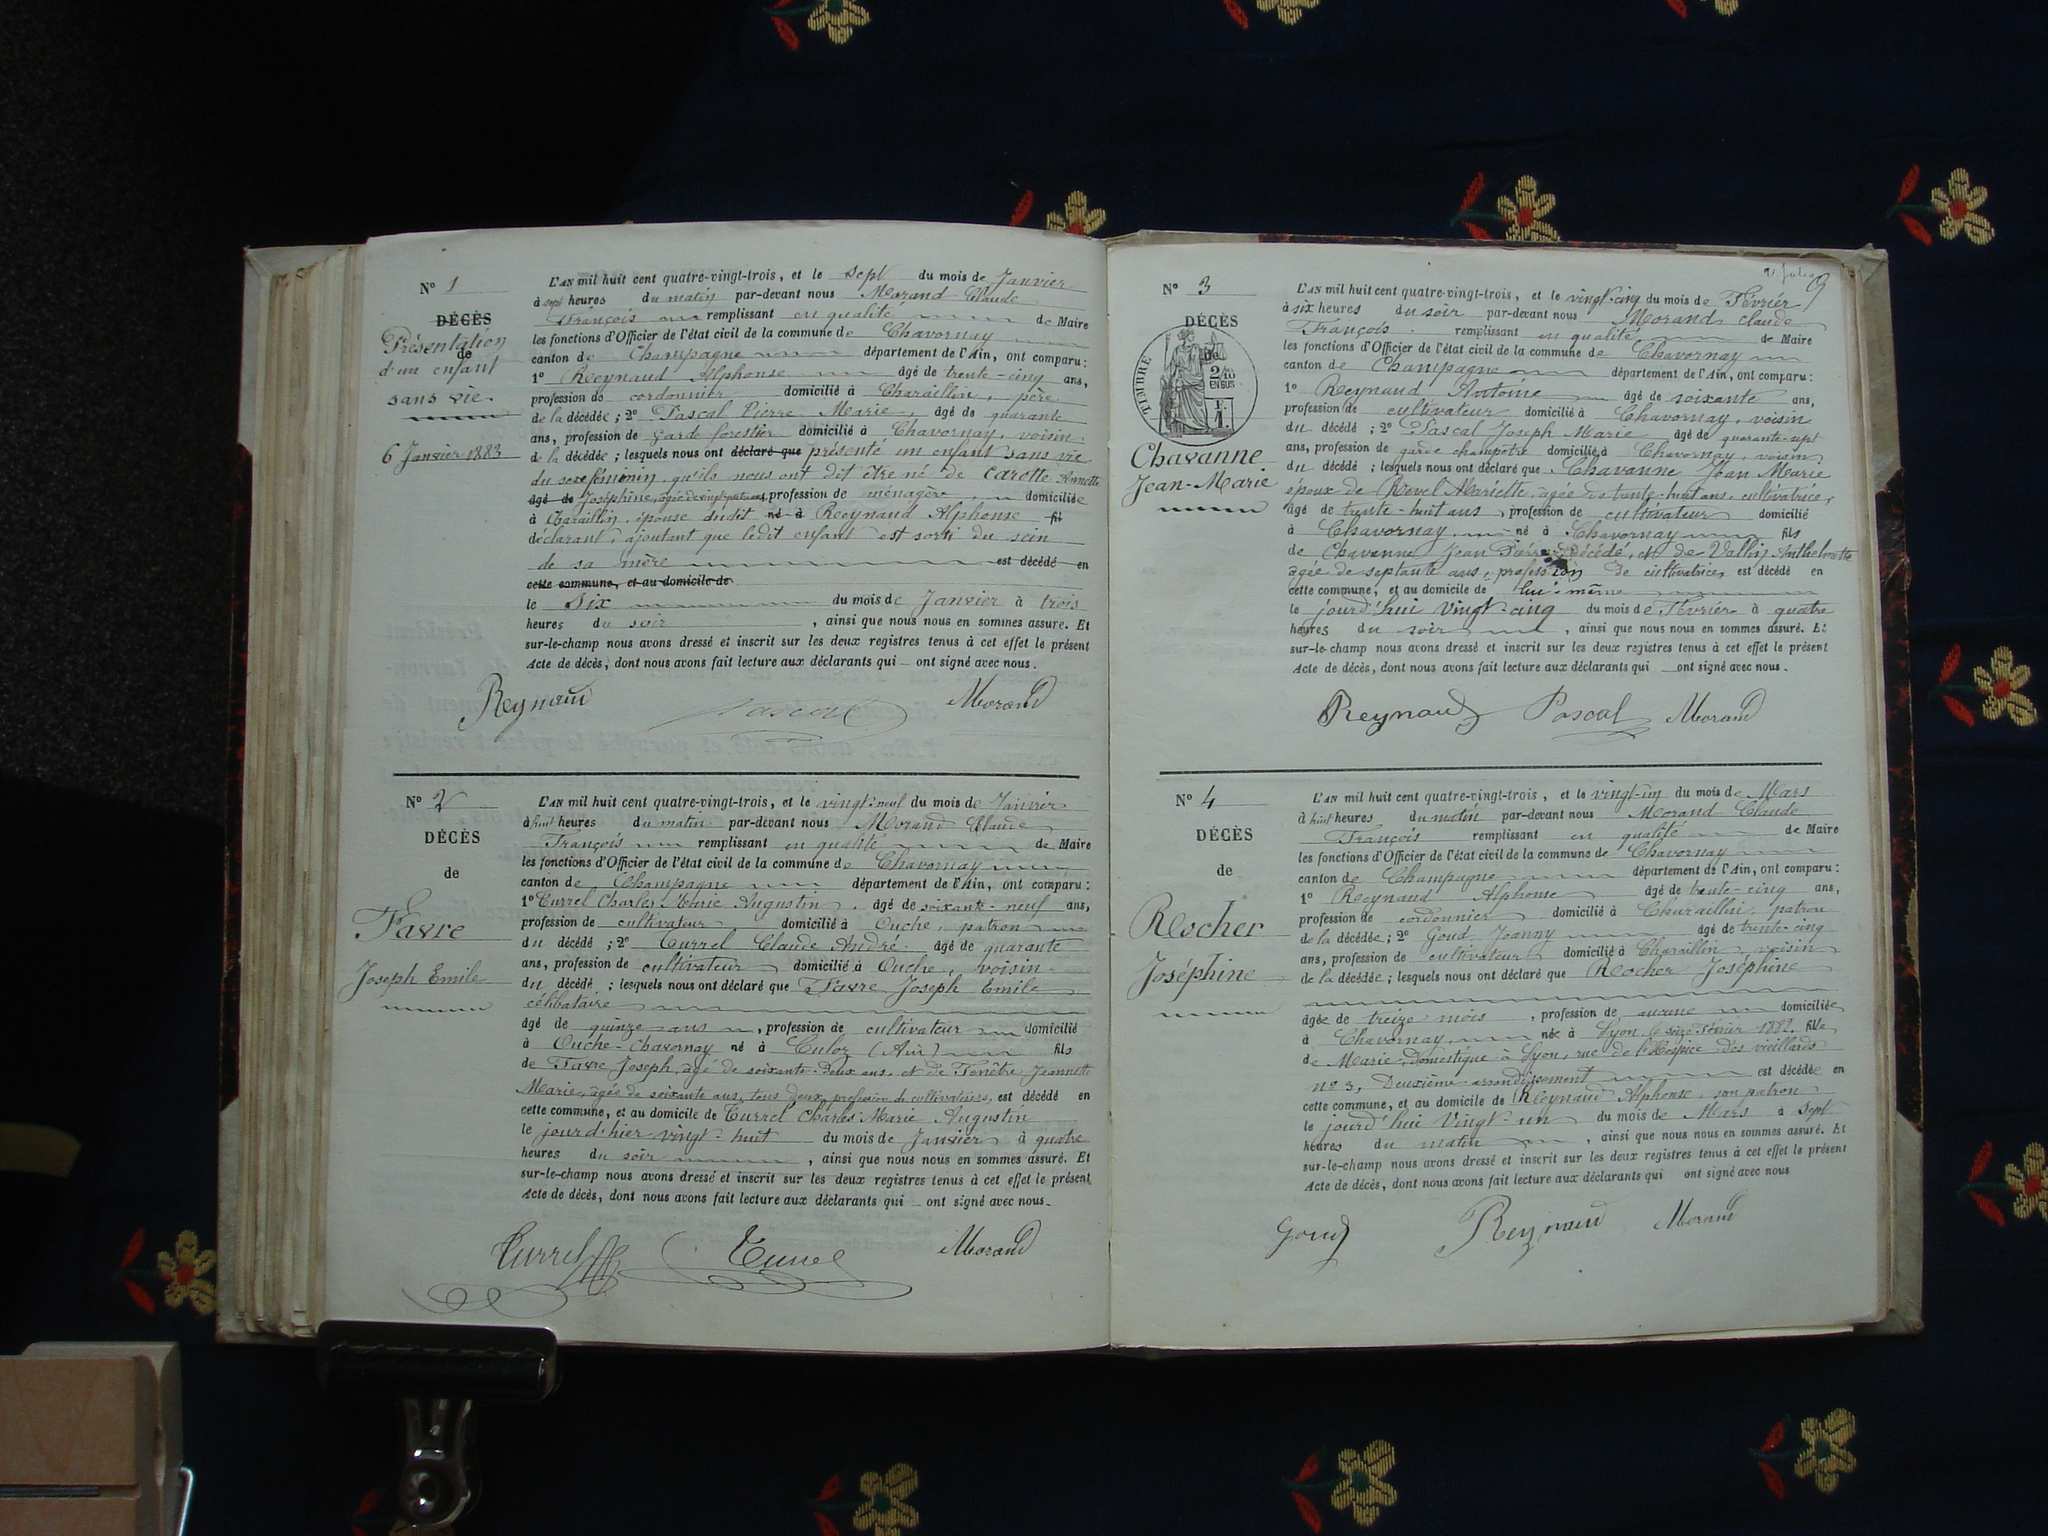 N° 1
DÉCÈS
Présentation
de
d'un enfant
sans vie
6 Janvier 1883
L'AN mil huit cent quatre-vingt-trois, et le sept du mois de Janvier
à sept heures du matin par-devant nous Morand Claude
François remplissant en qualité de Maire
les fonctions d'Officier de l'état civil de la commune de Chavornay
canton de Champagne département de l'Ain, ont comparu :
1° Reynaud Alphonse âgé de trente-cinq ans,
profession de cordonnier domicilié à Charaillin, père
de la décédée ; 2° Pascal Pierre Marie, âgé de quarante
ans, profession de garde forestier domicilié à Chavornay, voisin
de la décédée ; lesquels nous ont déclaré que présenté un enfant sans vie
du sexe féminin, qu'ils nous ont dit être né de Carotte Annette
âgé de Joséphine, âgée de profession de ménagère, domiciliée
à Charaillin, épouse dudit né à Reynaud Alphonse fil
déclarant, ajoutant que ledit enfant est sorti du sein
de sa mère est décédé en
cette commune, et au domicile de
le Six du mois de Janvier à trois
heures du soir, ainsi que nous nous en sommes assuré. Et
sur-le-champ nous avons dressé et inscrit sur les deux registres tenus à cet effet le présent
Acte de décès, dont nous avons fait lecture aux déclarants qui ont signé avec nous.
Reynaud Pascal Morand
N° 2
DÉCÈS
de
Favre
Joseph Emile
L'AN mil huit cent quatre-vingt-trois, et le vingt-neuf du mois de Janvier
à huit heures du matin par-devant nous Morand Claude
François remplissant en qualité de Maire
les fonctions d'Officier de l'état civil de la commune de Chavornay
canton de Champagne département de l'Ain, ont comparu :
1° Turrel Charles Marie Augustin, âgé de soixante-neuf ans,
profession de cultivateur domicilié à Ouche, patron
du décédé ; 2° Turrel Claude André âgé de quarante
ans, profession de cultivateur domicilié à Ouche, voisin
du décédé ; lesquels nous ont déclaré que Favre Joseph Emile
célibataire
âgé de quinze ans, profession de cultivateur domicilié
à Ouche-Chavornay né à Culoz (Ain) fils
de Favre Joseph, âgé de soixante-deux ans, et de Fenêtre Jeannette
Marie, âgée de soixante ans, tous deux profession de cultivateurs, est décédé en
cette commune, et au domicile de Turrel Charles Marie Augustin
le jour d'hier vingt-huit du mois de Janvier à quatre
heures du soir, ainsi que nous nous en sommes assuré. Et
sur-le-champ nous avons dressé et inscrit sur les deux registres tenus à cet effet le présent
Acte de décès, dont nous avons fait lecture aux déclarants qui ont signé avec nous.
Turrel Turrel Morand
N° 3
DÉCÈS
de
TIMBRE
2/10
EN SUS
F.
1.
Chavanne
Jean-Marie
L'AN mil huit cent quatre-vingt-trois, et le vingt-cinq du mois de Février
à six heures du soir par-devant nous Morand Claude
François remplissant en qualité de Maire
les fonctions d'Officier de l'état civil de la commune de Chavornay
canton de Champagne département de l'Ain, ont comparu :
1° Reynaud Antoine âgé de soixante ans,
profession de cultivateur domicilié à Chavornay, voisin
du décédé ; 2° Pascal Joseph Marie âgé de quarante-sept
ans, profession de garde champêtre domicilié à Chavornay, voisin
du décédé ; lesquels nous ont déclaré que Chavanne Jean Marie
époux de Revel Mariette, âgée de trente-huit ans, cultivatrice,
âgé de trente-huit ans, profession de cultivateur domicilié
à Chavornay, né à Chavornay fils
de Chavanne Jean Pierre décédé, et de Vallin Anthelmette
âgée de septante ans, profession de cultivatrice, est décédé en
cette commune, et au domicile de lui-même
le jourd'hui vingt-cinq du mois de Février à quatre
heures du soir, ainsi que nous nous en sommes assuré. Et
sur-le-champ nous avons dressé et inscrit sur les deux registres tenus à cet effet le présent
Acte de décès, dont nous avons fait lecture aux déclarants qui ont signé avec nous.
Reynaud Pascal Morand
N° 4
DÉCÈS
de
Rescher
Joséphine
L'AN mil huit cent quatre-vingt-trois, et le vingt-un du mois de Mars
à huit heures du matin par-devant nous Morand Claude
François remplissant en qualité de Maire
les fonctions d'Officier de l'état civil de la commune de Chavornay
canton de Champagne département de l'Ain, ont comparu :
1° Reynaud Alphonse âgé de trente-cinq ans,
profession de cordonnier domicilié à Charaillin, patron
de la décédée ; 2° Goud Joanny âgé de trente-cinq
ans, profession de cultivateur domicilié à Charaillin, voisin
de la décédée ; lesquels nous ont déclaré que Rocher Joséphine
âgée de treize mois, profession de aucune domiciliée
à Chavornay, née à Lyon, le seize février 1882. fille
de Marie, domestique à Lyon, rue de l'Hospice des vieillards
n° 3, Deuxième arrondissement est décédée en
cette commune, et au domicile de Reynaud Alphonse, son patron
le jourd'hui vingt-un du mois de Mars à sept
heures du matin, ainsi que nous nous en sommes assuré. Et
sur-le-champ nous avons dressé et inscrit sur les deux registres tenus à cet effet le présent
Acte de décès, dont nous avons fait lecture aux déclarants qui ont signé avec nous
Goud Reynaud Morand